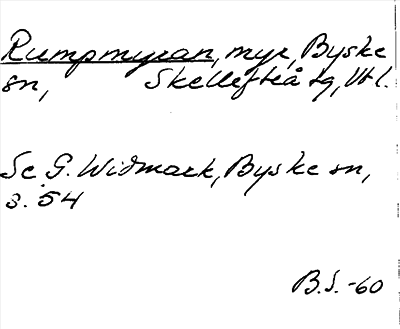 Rumpmyran, myr, Byske
sn, Skellefteå tg, Vbl.
Se G. Widmark, Byske sn,
s. 54
B.S. -60